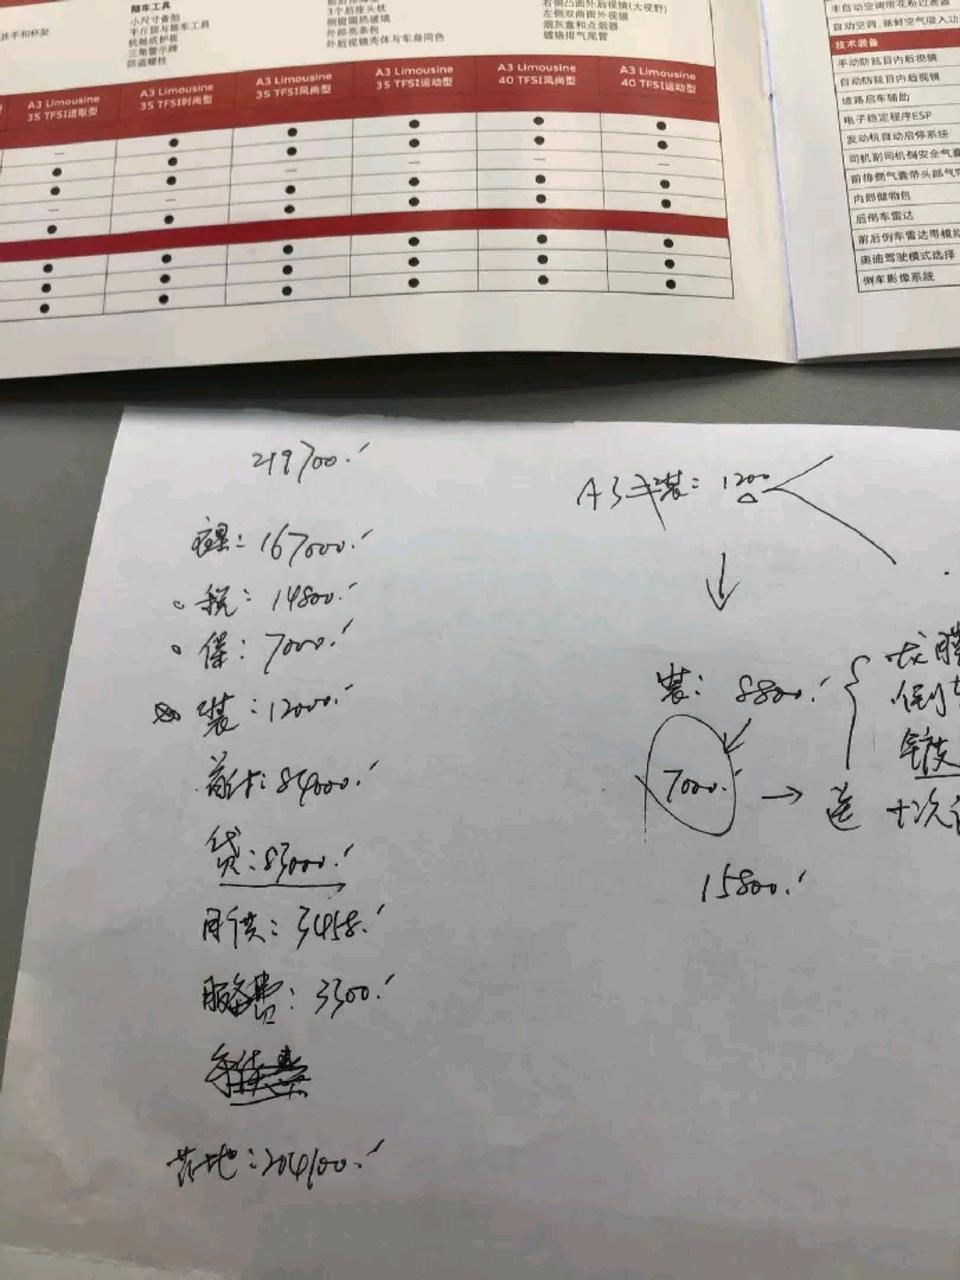 扶手和杯架
随车工具
小尺寸备胎
千斤顶与随车工具
机舱底护板
三角警示牌
防盗螺栓
3个后座头枕
侧窗隔热玻璃
外部亮条包
外后视镜壳体与车身同色
右侧凸面外后视镜(大视野)
左侧双曲面外视镜
烟灰盒和点烟器
镀铬排气尾管
A3 Limousine 35 TFSI进取型
A3 Limousine 35 TFSI时尚型
A3 Limousine 35 TFSI风尚型
A3 Limousine 35 TFSI运动型
A3 Limousine 40 TFSI风尚型
A3 Limousine 40 TFSI运动型
半自动空调带花粉过滤器
自动空调,新鲜空气吸入功
技术装备
手动防眩目内后视镜
自动防眩目内后视镜
坡路启车辅助
电子稳定程序ESP
发动机自动启停系统
司机副司机侧安全气囊
前排侧气囊带头部气
内部储物包
后倒车雷达
前后倒车雷达带模拟
奥迪驾驶模式选择
倒车影像系统
219700.
裸: 167000.
税: 14800.
保: 7000.
装: 12000.
首付: 84000.
贷: 83000.
月供: 3458.
服务费: 3300.
落地: 204100.
A3
装: 1200
装: 8800.
7000.
送
15800.